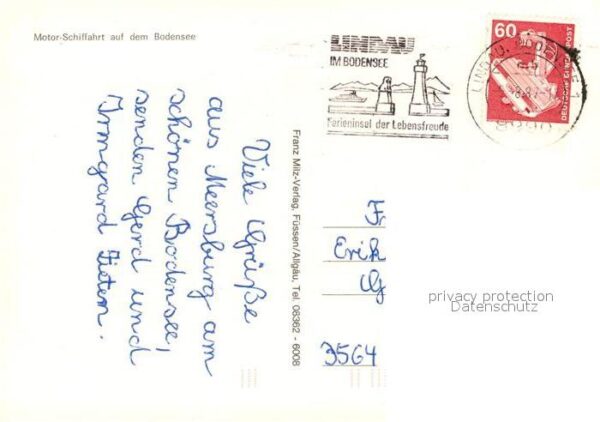 Motor-Schiffahrt auf dem Bodensee
Viele Grüße
aus Meersburg am
schönen Bodensee,
senden Gerd und
Irmgard
Franz Milz-Verlag, Füssen/Allgäu, Tel. 08362 - 6008
LINDAU
IM BODENSEE
Ferieninsel der Lebensfreude
60
DEUTSCHE BUNDESPOST
LINDAU
Fr.
Erik
G
3564
privacy protection
Datenschutz